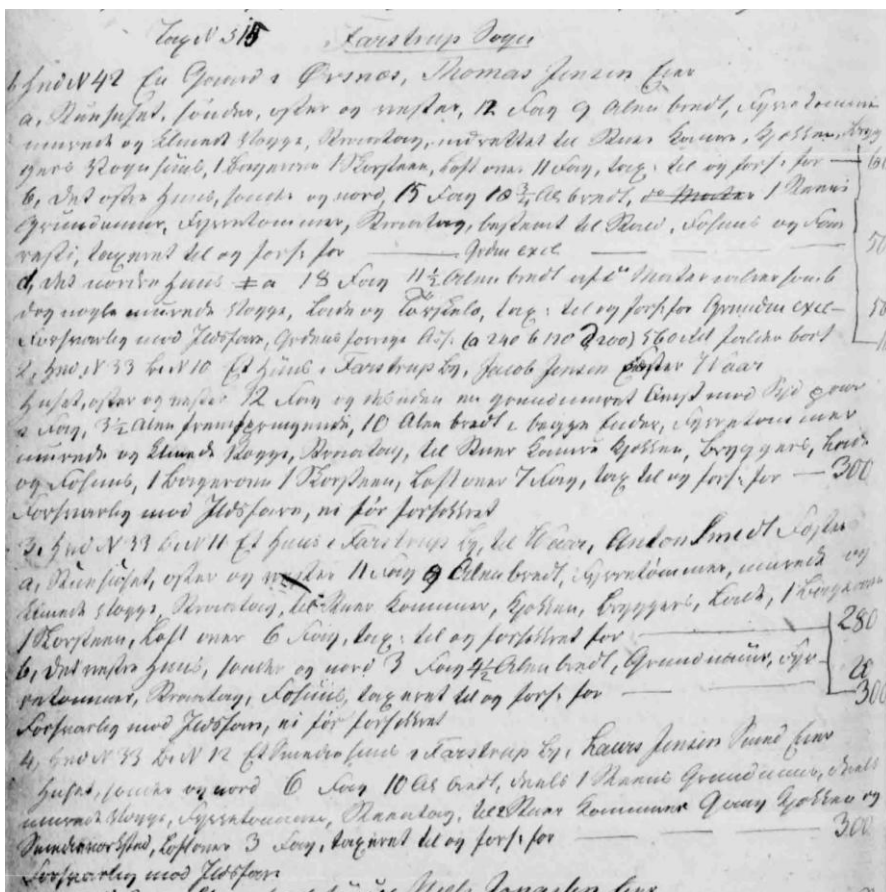 Tax N 315 Farstrup Sogn
1, Hus N 42 En Gaard i Ørsnes, Thomas Jensen Eier
a, Stuehuset, sønder, øster og vester, 12 Fag 9 Alen bredt, Fyrretømmer
murede og klinede Vægge, Straatag, indrettet til Stuer Kamre, Kjøkken, Bryg
gers Vognhuus, 1 Bagerovn 1 Skorsteen, Loft over 11 Fag, tax: til og fors: for
b, det østre Huus, sønder og nord, 15 Fag 10 3/4 Al bredt, 1 Steens
Grundmuur, Fyrretømmer, Straatag, bestemt til Stald, Fohuus og
taxeret til og fors: for Grdm excl
d, det nordre Huus 18 Fag 11 1/2 Alen bredt af do Mater som b
dog nogle murede Vægge, Lade og Tørskelo, tax: til og fors: for Grundm excl
Forsvarlig mod Ildsfare, Gaardens forrige Ass. (a 240 b 120 d 200) 560 falder bort
2, Hus N 33 B. N 10 Et Huus i Farstrup By, Jacob Jensen Fæster 7 Vaar
Huset, øster og vester 12 Fag og en grundmuret mod Syd paa
2 Fag, 3 1/2 Alen fremspringende, 10 Alen bredt i begge Ender, Fyrretømmer
murede og klinede Vægge, Straatag, til Stuer Kamre Kjøkken, Bryggers, Lade
og Fohuus, 1 Bagerovn 1 Skorsteen, Loft over 7 Fag, tax til og fors: for 300
Forsvarlig mod Ildsfare, ei før forsikkret
3, Hus N 33 B. N 11 Et Huus i Farstrup By, til Vaar, Anton Smedt Fæster
a, Stuehuset, øster og vester 11 Fag 9 Alen bredt, Fyrretømmer, murede og
klinede Vægge, Straatag, til Stuer Kammer, Kjøkken, Bryggers, Lade, 1 Bagerovn
1 Skorsteen, Loft over 6 Fag, tax: til og forsikkret for 280
b, det vestre Huus, sønder og nord 3 Fag 4 1/2 Alen bredt, Grundmuur, Fyr-
retømmer, Straatag, Fohuus, taxeret til og fors: for 20
300
Forsvarlig mod Ildsfare, ei før forsikkret
4, Hus N 33 B. N 12 Et Smedie huus i Farstrup By, Laurs Jensen Smed Eier
Huset, sønder og nord 6 Fag 10 Al bredt, deels 1 Steens Grundmuur, deels
murede Vægge, Fyrretømmer, Straatag, til Stuer Kammer Gang Kjøkken og
Smedieværksted, Loft over 3 Fag, taxeret til og fors: for 300
Forsvarlig mod Ildsfare
Eier